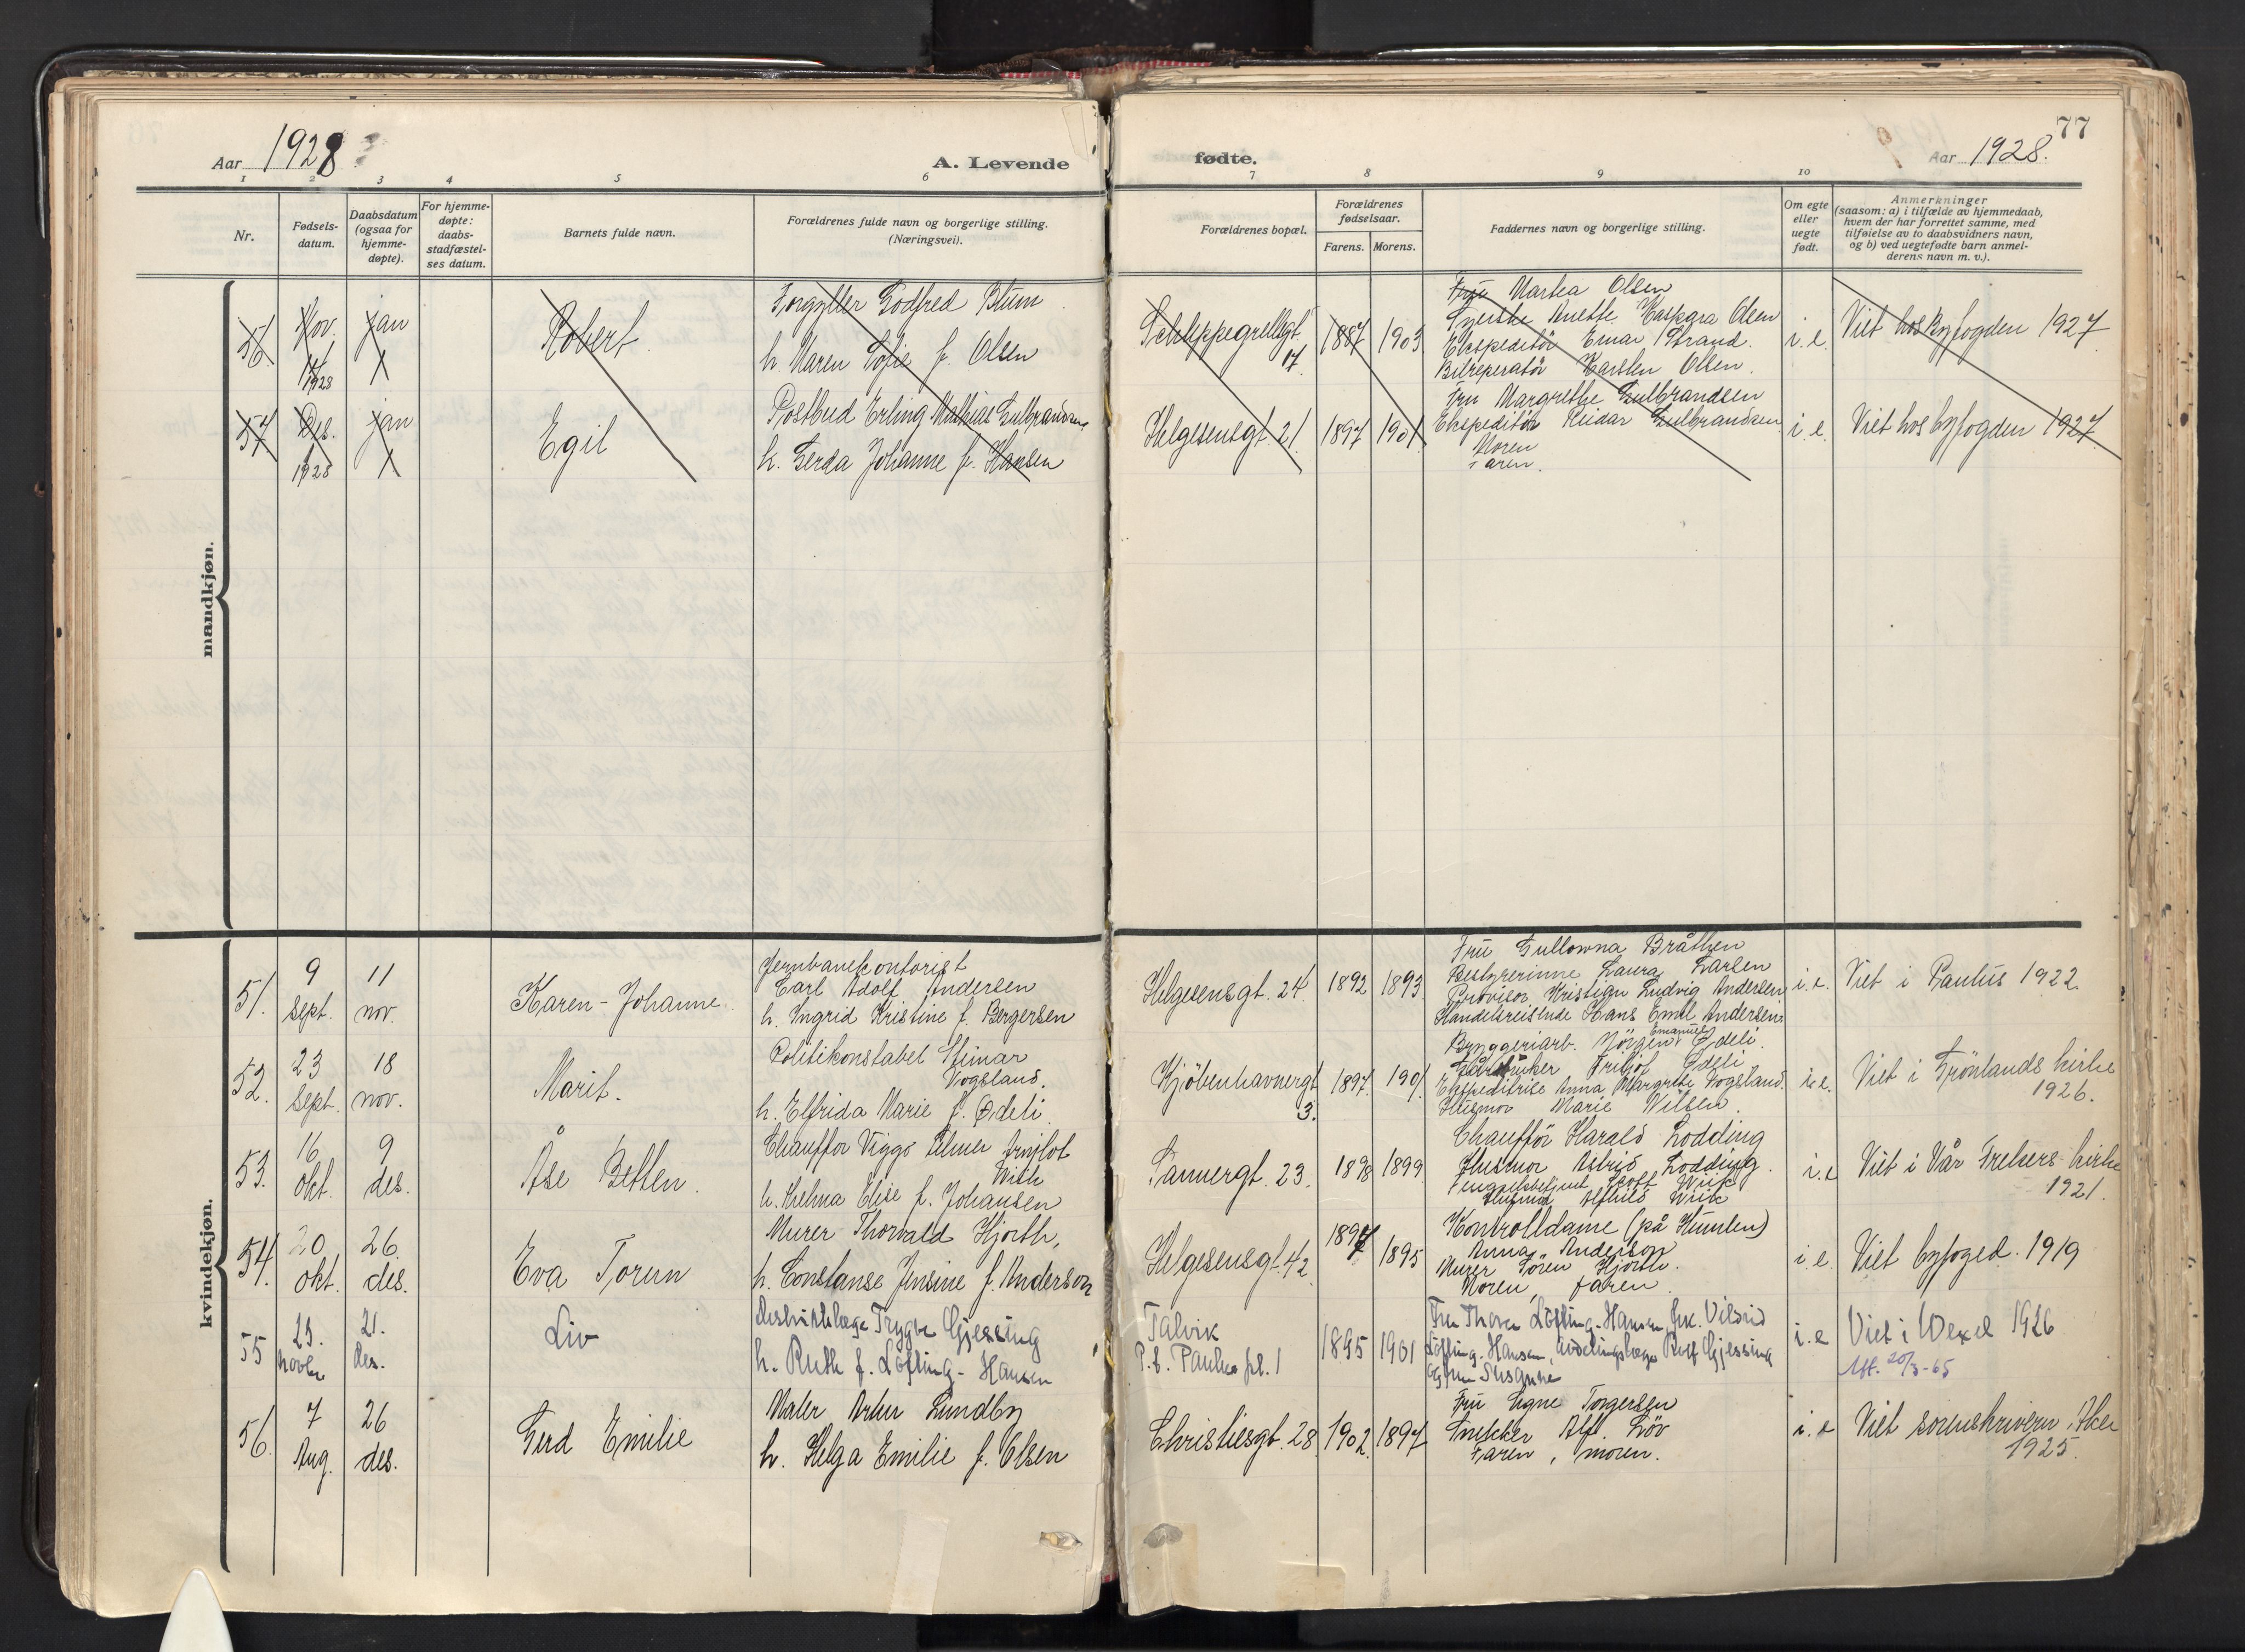 Aar 1928
A. Levende
1 2 3 4 5 6
Nr.
Fødsels-
datum.
Daabsdatum
(ogsaa for
hjemme-
døpte).
For hjemme-
døpte:
daabs-
stadfæstel-
ses datum.
Barnets fulde navn.
Forældrenes fulde navn og borgerlige stilling.
(Næringsvei).
mandkjøn.
56
Nov.
17
1928
jan
Robert
Forgylder Godfred Blum
h. Maren Sofie f. Olsen
57
Des.
1928
jan
Egil
Postbud Erling Mathias Gulbrandsen
h. Gerda Johanne f. Hansen
kvindekjøn.
51.
9
Sept.
11
nov.
Karen-Johanne.
Jernbanekontorist
Carl Adolf Andersen
h. Ingrid Kristine f. Bergersen
52.
23
Sept.
18
nov.
Marit.
Politikonstabel Steinar
Vogsland.
h. Elfrida Marie f. Ødeli.
53.
16
Okt.
9
des.
Åse Betten.
Chauffør Viggo Elmer
With
h. Helma Elise f. Johansen
54.
20
Okt.
26.
des.
Eva Torun
Murer Thorvald Hjorth,
h. Constanse Jensine f. Anderson
55
novbr
21.
des.
Liv
Trygve Gjessing
h. Ruth f. Löfling-Hansen
56.
7
Aug.
26
des.
Gerd Emilie
Maler Artur Lundby
h. Helga Emilie f. Olsen
77
fødte.
Aar 1928.
7 8 9 10
Forældrenes bopæl.
Forældrenes
fødselsaar.
Farens. Morens.
Faddernes navn og borgerlige stilling.
Om egte
eller
uegte
født.
Anmerkninger
(saasom: a) i tilfælde av hjemmedaab,
hvem der har forrettet samme, med
tilføielse av to daabsvidners navn,
og b) ved uegtefødte barn anmel-
derens navn m. v.).
Schleppegrellsgt.
17
1887
1903
Fru Martea Olsen
Syerske Anette Kaspara Olsen
Ekspeditör Einar Strand.
Bilreperatör Karsten Olsen.
i. e.
Viet hos byfogden 1927
Helgesensgt. 21
1897
1901
Fru Margrethe Gulbrandsen
Ekspeditör Reidar Gulbrandsen
Moren
Faren.
i. e.
Viet hos byfogden 1927
Helgesensgt. 24
1892
1893
Fru Gullowna Bråthen
Bestyrerinne Laura Larsen
Provisor Kristian Ludvig Andersen
Handelsreisende Hans Emil Andersen.
i. e.
Viet i Paulus 1922.
Kjöbenhavnergt
3.
1897.
1901.
Emanuel
Bryggeriarb. Jörgen Ødeli.
Fritjof Ødeli
Ekspeditrise Anna Margrethe Vogsland.
Husmor Marie Nilsen.
i. e.
Viet i Grönlands kirke
1926.
Sannergt. 23.
1898
1899
Chaufför Harald Lodding
Husmor Astrid Lodding.
i. e
Viet i Vår Frelsers kirke
1921.
Helgesensgt. 42.
1897
1895
Kontrolldame (på Humlen)
Anna Anderson
Murer Sören Hjorth.
Moren, faren.
i. e.
Viet byfoged. 1919
Talvik
P.t. Paulus pl. 1
1895
1901
Fru Thora Löfling-Hansen, frk. Vildrid
Löfling-Hansen, Avdelingslæge Rolf Gjessing
og fru Susanne
i. e
Viet i Wexel 1926
Utt. 20/3-65
Christiesgt. 28
1902.
1897
Fru Signe Torgersen
Snekker Alf. Löv
Faren, moren.
i. e
Viet sorenskriveren i Aker
1925.